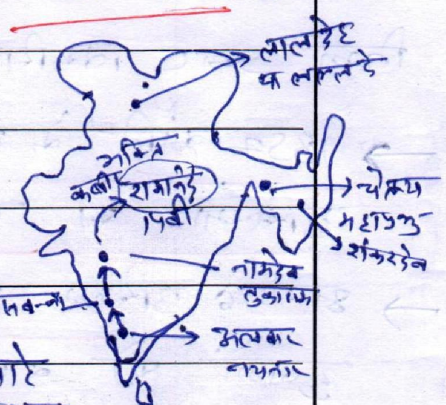 लालदेह
या लल्लदे
भक्ति
कबीर
रामानंद
चैतन्य
महाप्रभु
शंकरदेव
नामदेव
तुकाराम
अलवार
नयनार